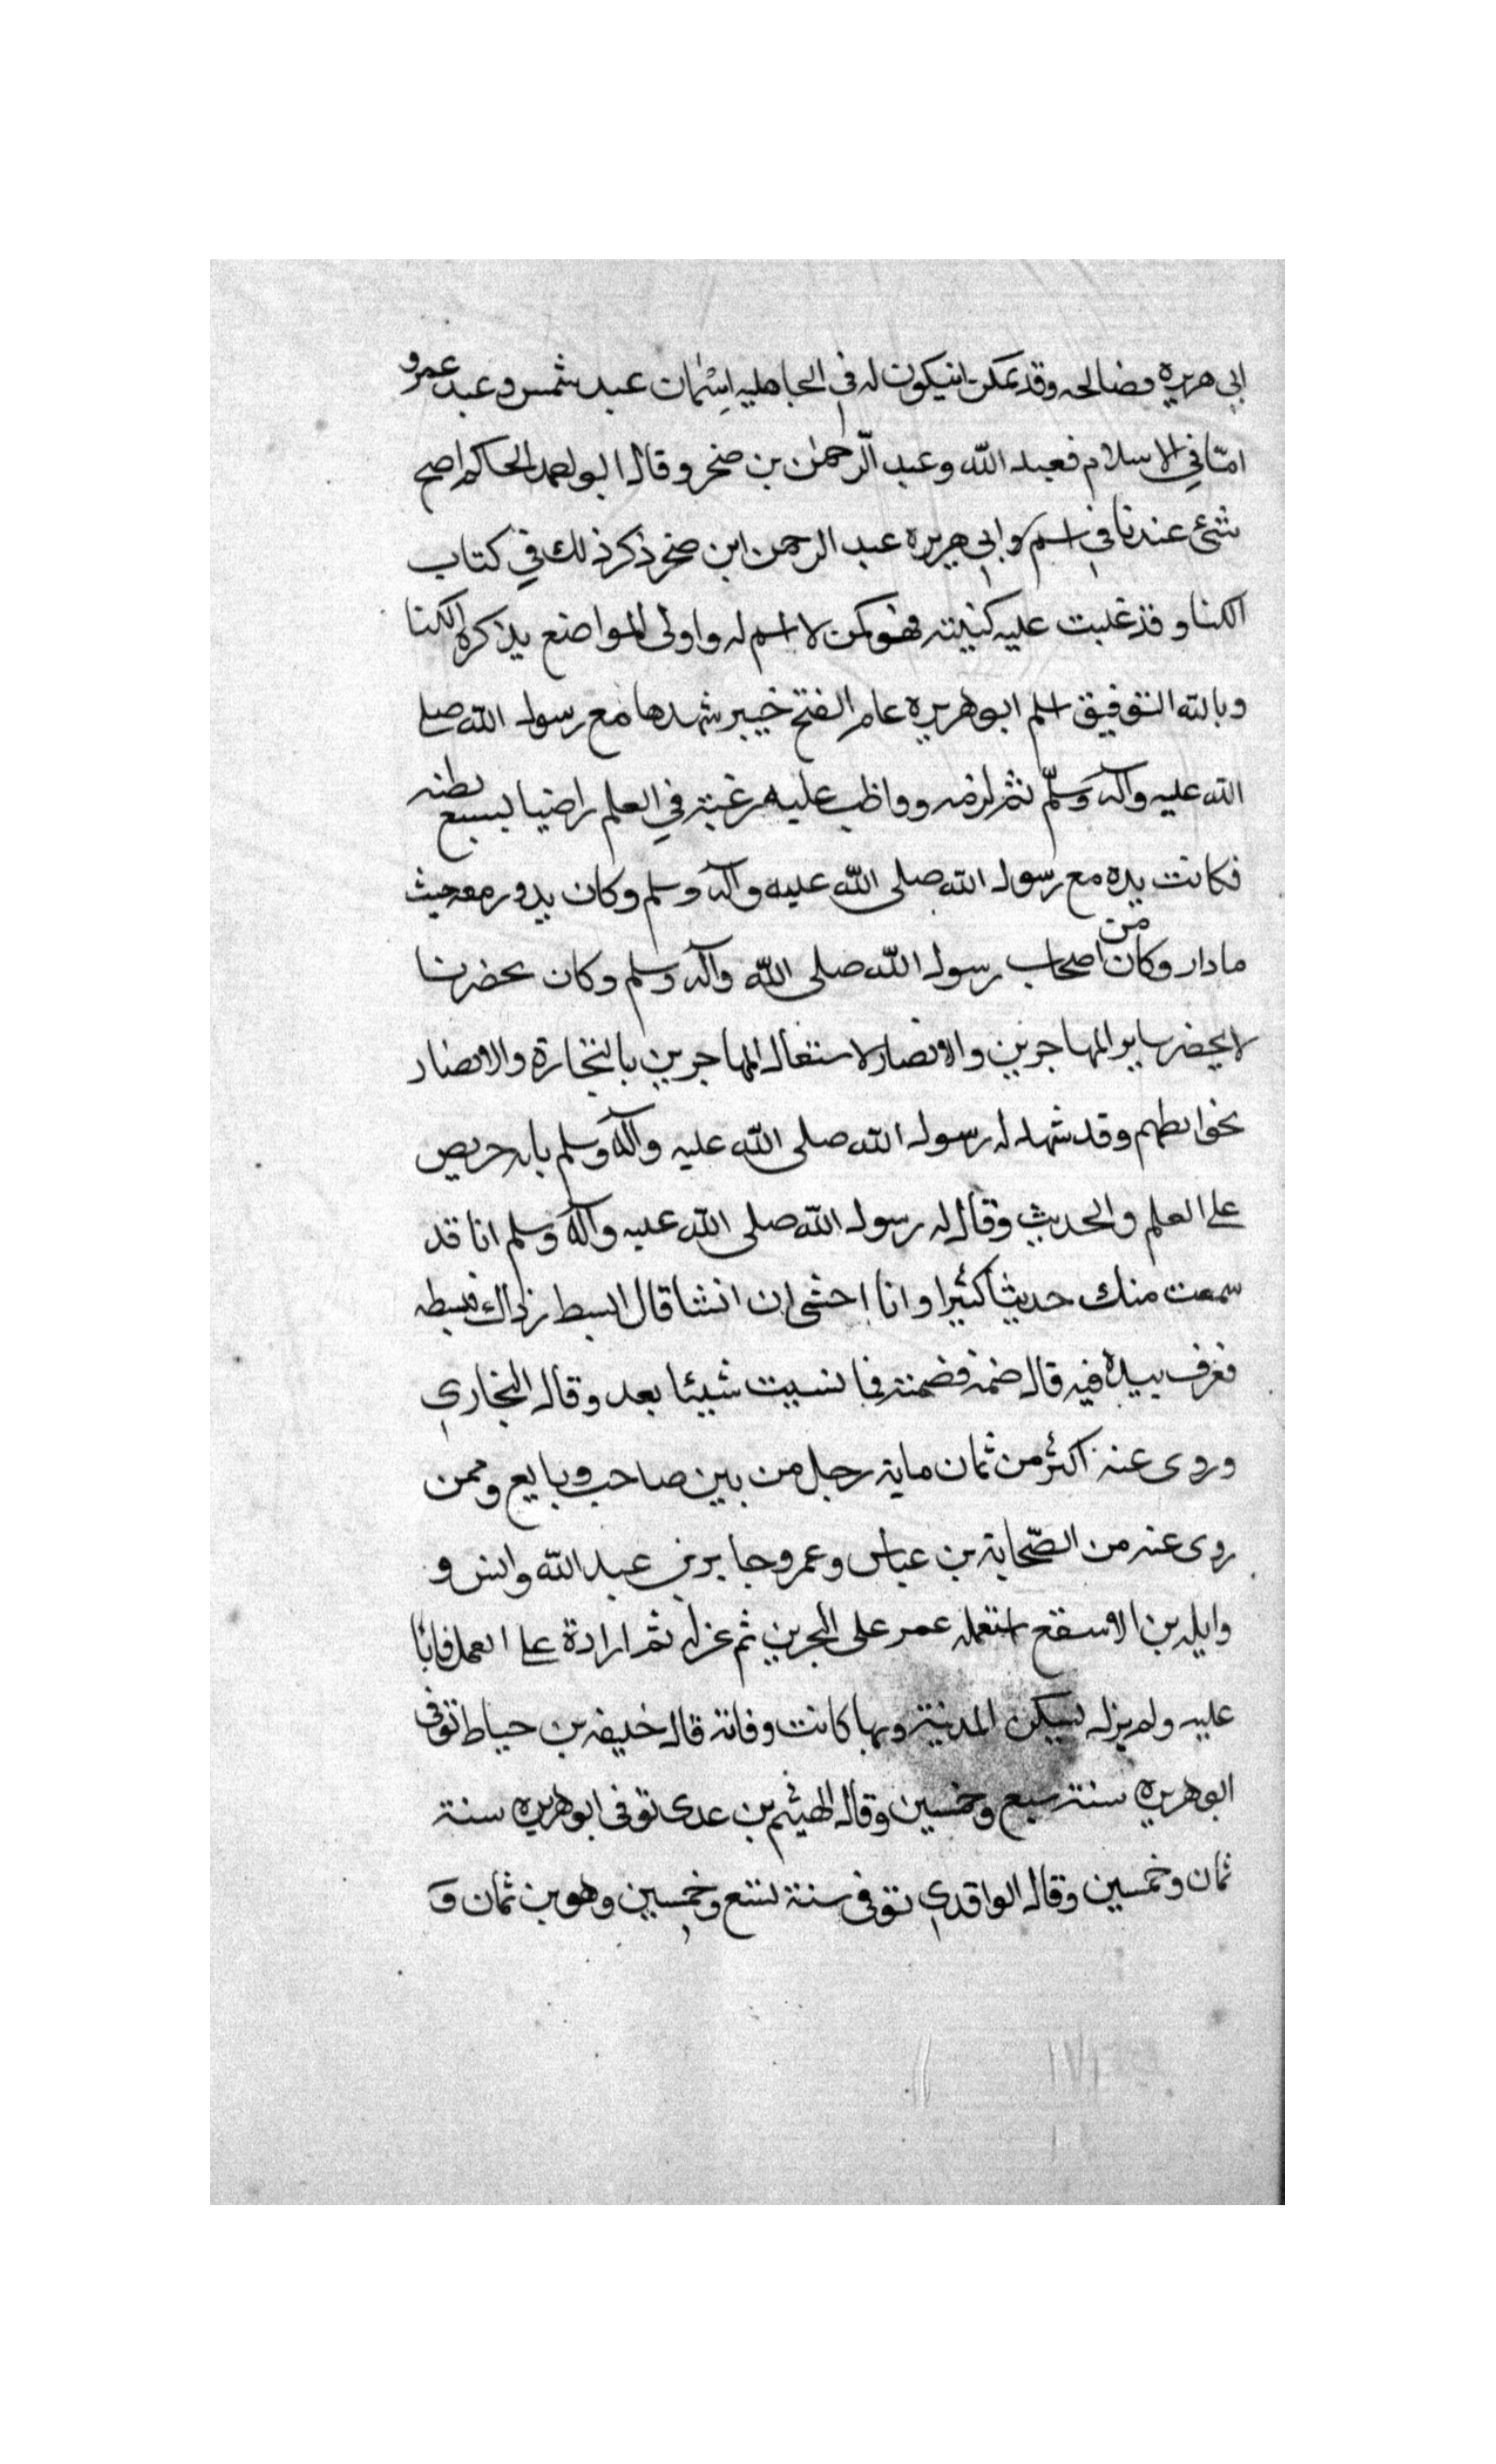 ابي هريره فضالحه وقد يمكن انيكون له في الجاهليه اسمان عبد شمس وعبد عمرو
امّا في الاسلام فعبد الله وعبد الرّحمن بن صخر وقال ابو احمد الحاكم اصح
شئ عندنا في اسم ابي هريره عبد الرحمن ابن صخر ذكر ذلك في كتاب
الكنا وقد غلبت عليه كنيته فهو كمن لا اسم له واولى المواضع بذكره الكنا
وبالله التوفيق اسلم ابو هريره عام الفتح خيبر شهدها مع رسول الله صلى
الله عليه وآله وسلّم ثم لزمه وواظب عليه رغبة في العلم راضيا بسبع بطنه
فكانت يده مع رسول الله صلى الله عليه وآله وسلم وكان يدور معه حيث
ما دار وكان من اصحاب رسول الله صلى الله وآله وسلم وكان يحضر ما
لا يحضر ساير المهاجرين والانصار لاستغال المهاجرين بالتجارة والانصار
بحوايطهم وقد شهد له رسول الله صلى الله عليه وآله وسلم بانه حريص
على العلم والحديث وقال له رسول الله صلى الله عليه وآله وسلم انا قد
سمعت منك حديثا كثيرا وانا اخشى ان انسا قال ابسط رداك فبسطه
فغرف بيده فيه قال ضمه فضمته فما نسيت شيئا بعد وقال البخاري
وروى عنه اكثر من ثمان ماية رجل من بين صاحب وبايع وممن
روى عنه من الصّحابة بن عباس وعمر وجابر بن عبد الله وانس و
وايله بن الاسقع استعمله عمر على البحرين ثم عزله ثم اراده على العمل فابا
عليه ولم يزل يسكن المدينة وبها كانت وفاته قال خليفه بن خياط توفى
ابو هريره سنة سبع وخمسين وقال الهيثم بن عدى توفى ابو هريره سنة
ثمان وخمسين وقال الواقدي توفى سنة تسع وخمسين وهو بن ثمان و